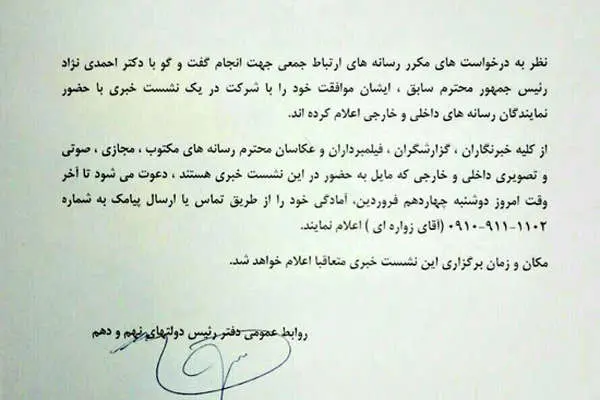 نظر به درخواست های مکرر رسانه های ارتباط جمعی جهت انجام گفت و گو با دکتر احمدی نژاد
رئیس جمهور محترم سابق ، ایشان موافقت خود را با شرکت در یک نشست خبری با حضور
نمایندگان رسانه های داخلی و خارجی اعلام کرده اند.
از کلیه خبرنگاران ، گزارشگران ، فیلمبرداران و عکاسان محترم رسانه های مکتوب ، مجازی ، صوتی
و تصویری داخلی و خارجی که مایل به حضور در این نشست خبری هستند ، دعوت می شود تا آخر
وقت امروز دوشنبه چهاردهم فروردین، آمادگی خود را از طریق تماس یا ارسال پیامک به شماره
۰۹۱۰-۹۱۱-۱۱۰۲ (آقای زواره ای ) اعلام نمایند.
مکان و زمان برگزاری این نشست خبری متعاقبا اعلام خواهد شد.
روابط عمومی دفتر رئیس دولتهای نهم و دهم